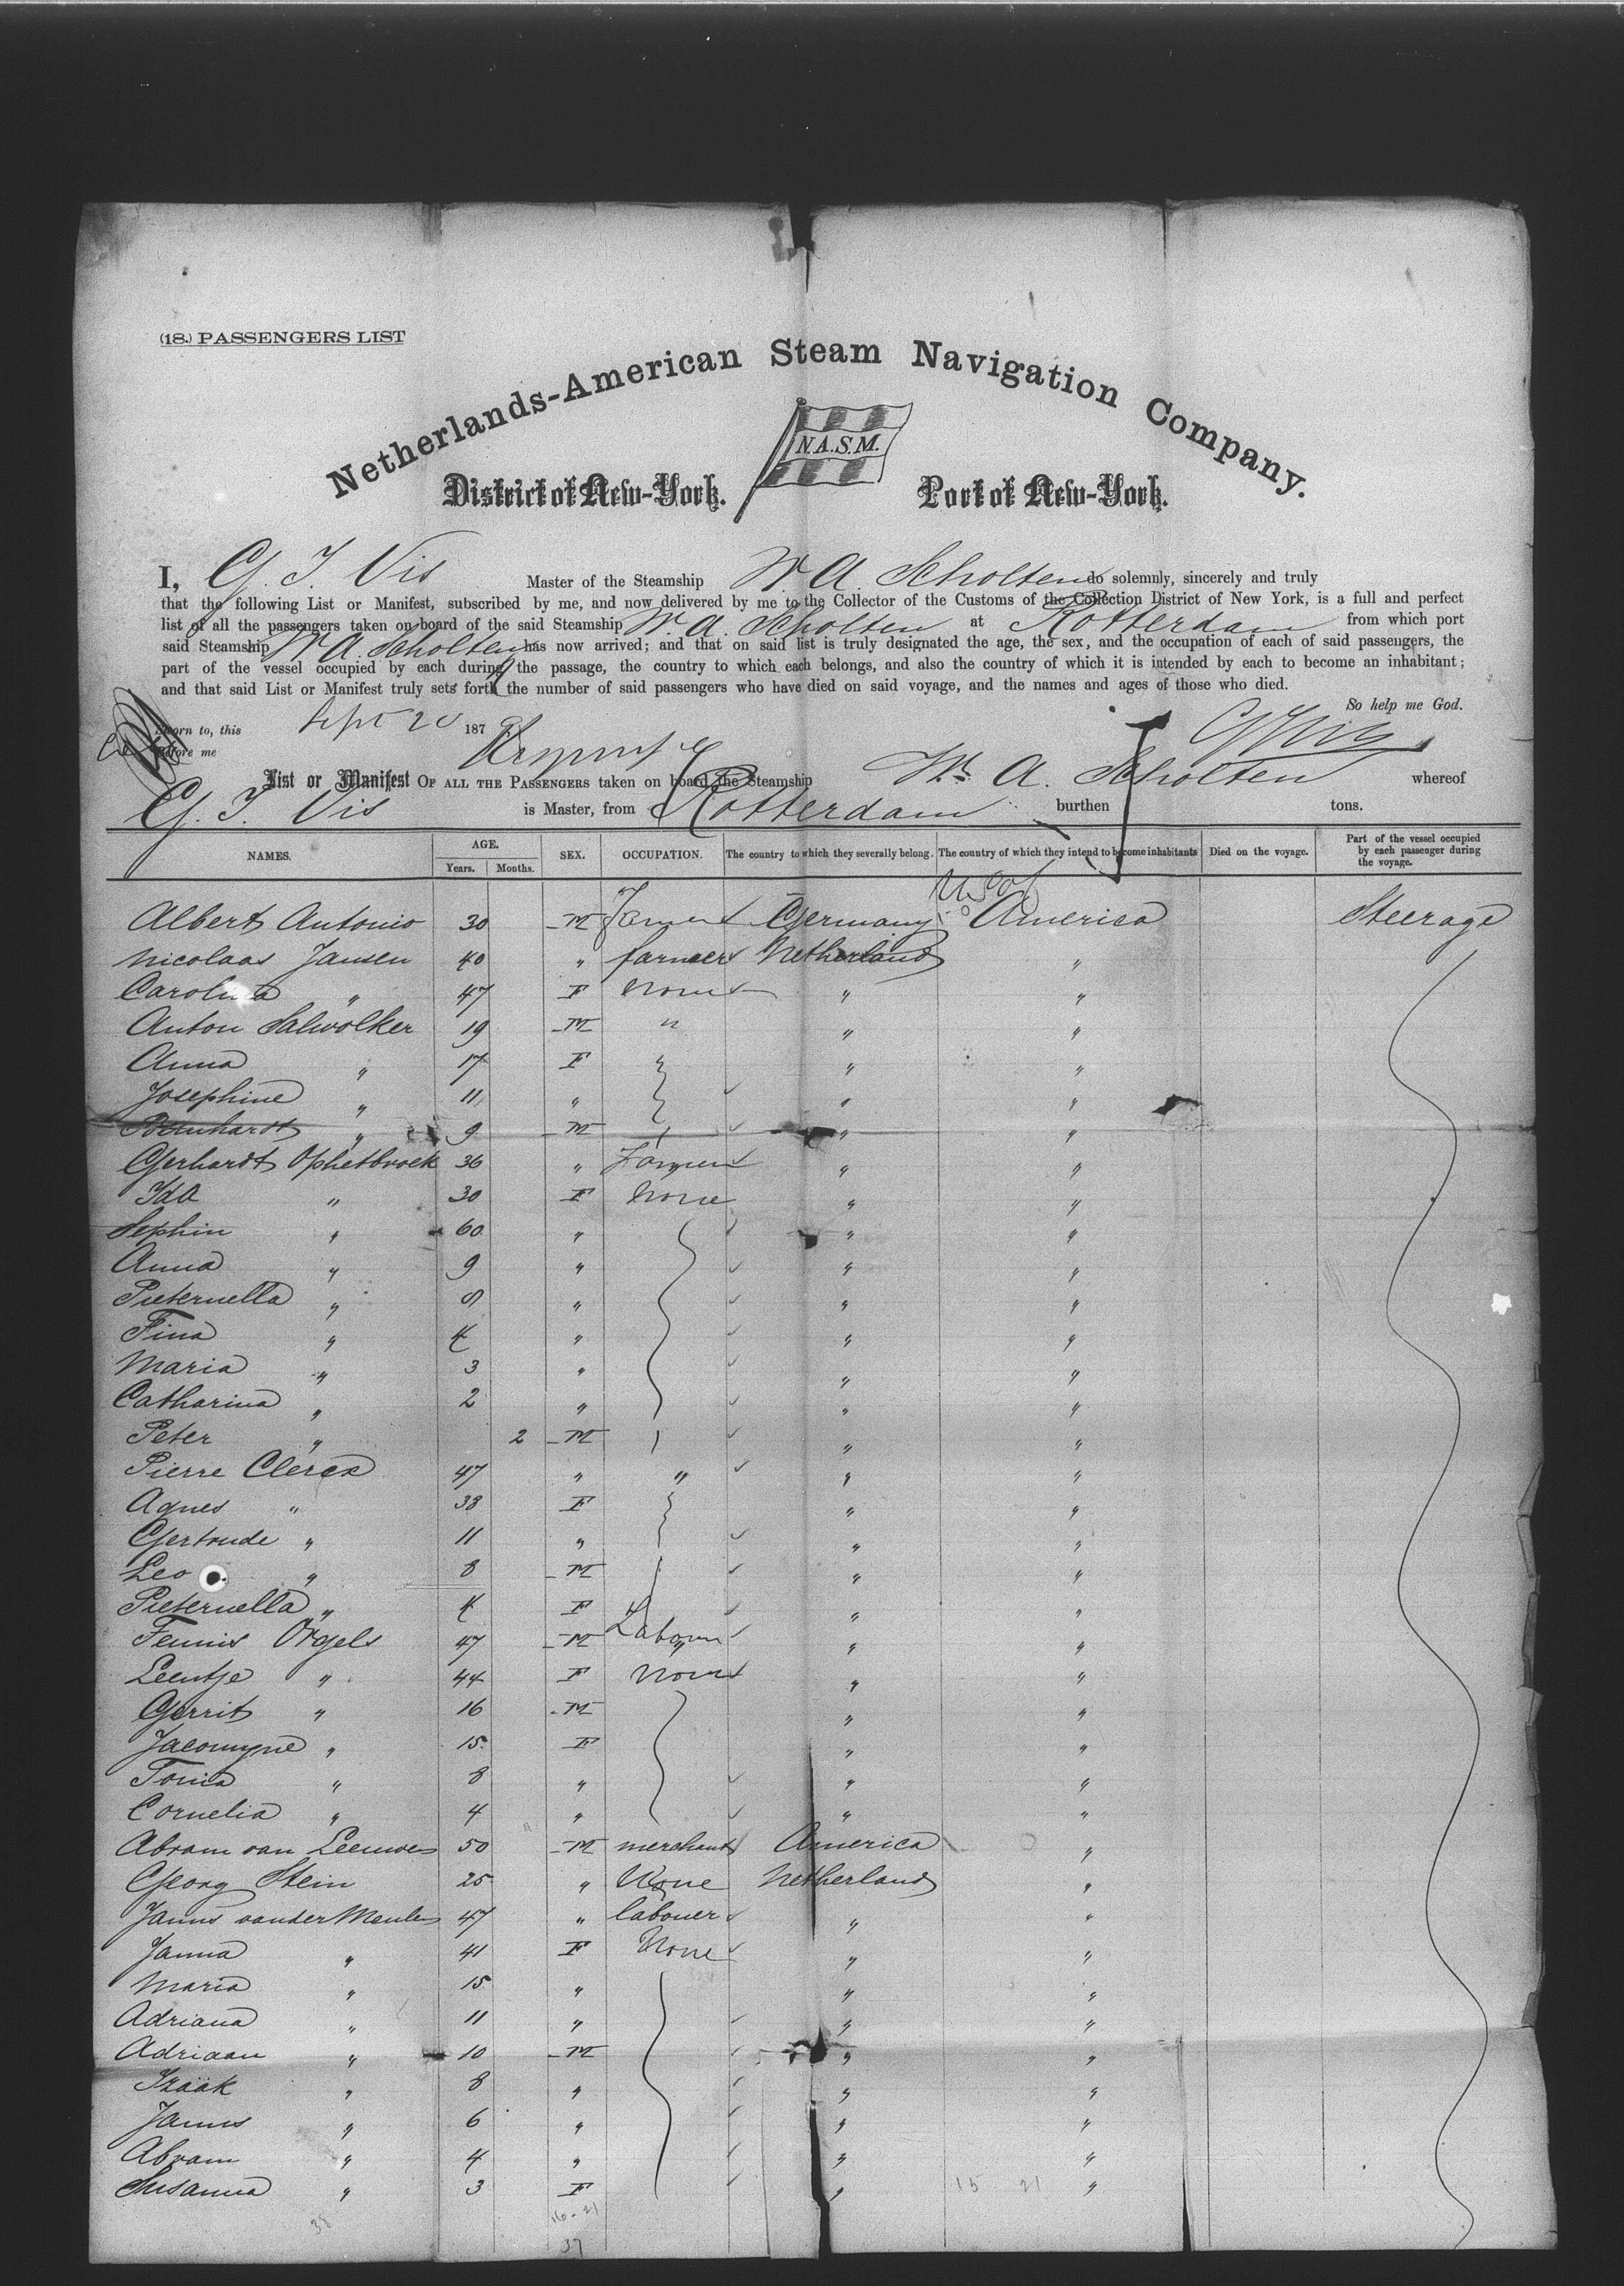 (18.) PASSENGERS LIST
Netherlands-American Steam Navigation Company.
N.A.S.M.
District of New-York. Port of New-York.
I, G. J. Vis Master of the Steamship W. A. Scholten do solemnly, sincerely and truly
that the following List or Manifest, subscribed by me, and now delivered by me to the Collector of the Customs of the Collection District of New York, is a full and perfect
list of all the passengers taken on board of the said Steamship W. A. Scholten at Rotterdam from which port
said Steamship W. A. Scholten has now arrived; and that on said list is truly designated the age, the sex, and the occupation of each of said passengers, the
part of the vessel occupied by each during the passage, the country to which each belongs, and also the country of which it is intended by each to become an inhabitant;
and that said List or Manifest truly sets forth the number of said passengers who have died on said voyage, and the names and ages of those who died.
So help me God.
Sworn to, this Sept 20 187
before me
List or Manifest OF ALL THE PASSENGERS taken on board the Steamship W. A. Scholten whereof
G. J. Vis is Master, from Rotterdam burthen tons.
NAMES. AGE. Years. Months. SEX. OCCUPATION. The country to which they severally belong. The country of which they intend to become inhabitants Died on the voyage. Part of the vessel occupied by each passenger during the voyage.
Albert Antonio 30 M Farmer Germany America Steerage
Nicolaas Jansen 40 " farmer Netherland "
Carolina " 47 F None " "
Anton Salwolker 19 M " " "
Anna " 17 F " "
Josephine " 11 " " "
Bernhardt " 9 M " "
Gerhardt Ophetbroek 36 " Farmer " "
Ida " 30 F None " "
Sephin " 60 " " "
Anna " 9 " " "
Pieternella " " " "
Fina " 4 " " "
Maria " 3 " " "
Catharina " 2 " " "
Peter " 2 M " "
Pierre Clercx 47 " " " "
Agnes " 38 F " "
Gertrude " 11 " " "
Leo " 8 M " "
Pieternella " 4 F " "
Teunis Orgels 47 M Labourer " "
Leentje " 44 F None " "
Gerrit " 16 M " "
Jacomyne " 15 F " "
Tonia " 8 " " "
Cornelia " 4 " " "
Abram van Leeuwen 50 M merchant America "
Georg Stein 25 " None Netherland "
Janus van der Meulen 47 " labouer " "
Janna " 41 F None " "
Maria " 15 " " "
Adriana " 11 " " "
Adriaan " 10 M " "
Izäak " 8 " " "
Janus " 6 " " "
Abram " 4 " " "
Susanna " 3 F " "
15 21
38 16-21
37